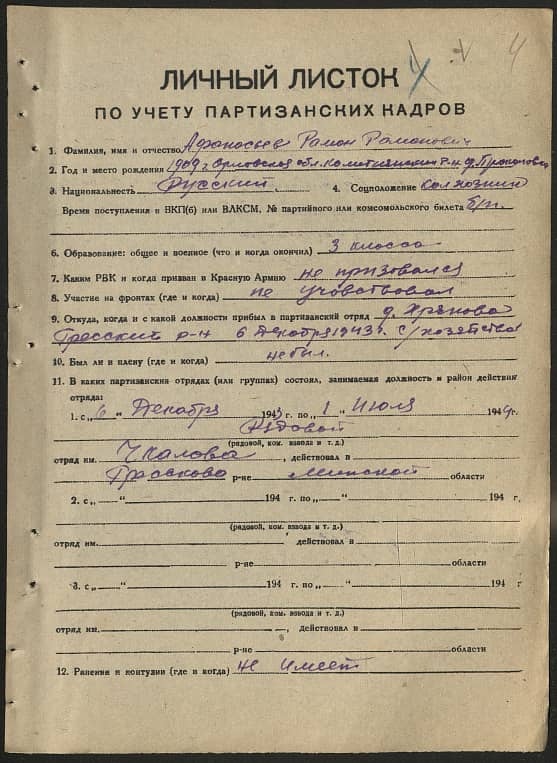 4 V 4
ЛИЧНЫЙ ЛИСТОК
ПО УЧЕТУ ПАРТИЗАНСКИХ КАДРОВ
1. Фамилия, имя и отчество Афонасьев Роман Романович
2. Год и место рождения 1909 г Орловская обл. р-н д.
3. Национальность Русский 4. Соцположение колхозник
Время поступления в ВКП(б) или ВЛКСМ, № партийного или комсомольского билета б/п.
6. Образование: общее и военное (что и когда окончил) 3 класса
7. Каким РВК и когда призван в Красную Армию не призовался
8. Участие на фронтах (где и когда) не учавствовал
9. Откуда, когда и с какой должности прибыл в партизанский отряд д.
Гресский р-н 6 Декабря 1943 г. с/хозяйства
10. Был ли в плену (где и когда) не был.
11. В каких партизанских отрядах (или группах) состоял, занимаемая должность и район действия
отряда:
1. с „6" Декабря 1943 г. по „1" Июля 1944 г.
Рядовой
(рядовой, ком. взвода и т. д.)
отряд им. Чкалова, действовал в
Гресского р-не Минской области
2. с „ " 194 г. по „ " 194 г.
(рядовой, ком. взвода и т. д.)
отряд им. действовал в
р-не области
3. с „ " 194 г. по „ " 194 г.
(рядовой, ком. взвода и т. д.)
отряд им. , действовал в
р-не области
12. Ранения и контузии (где и когда) не имеет